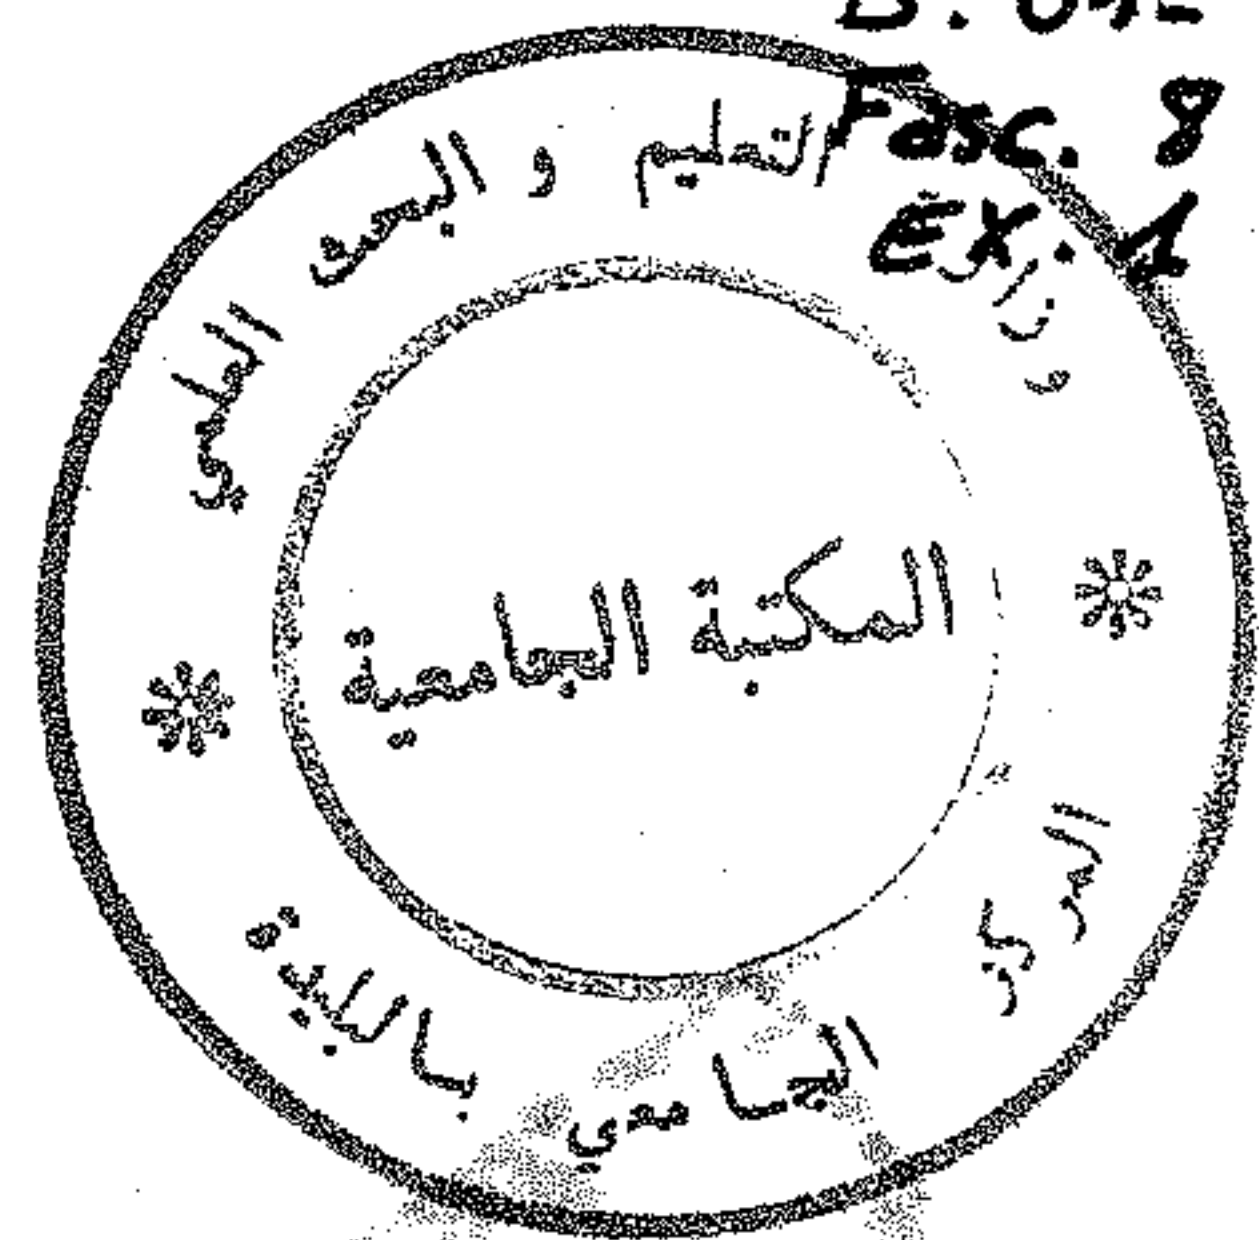 Fasc. 8
Ex. 1
وزارة التعليم و البحث العلمي
المكتبة الجامعية
المركز الجامعي بالبليدة